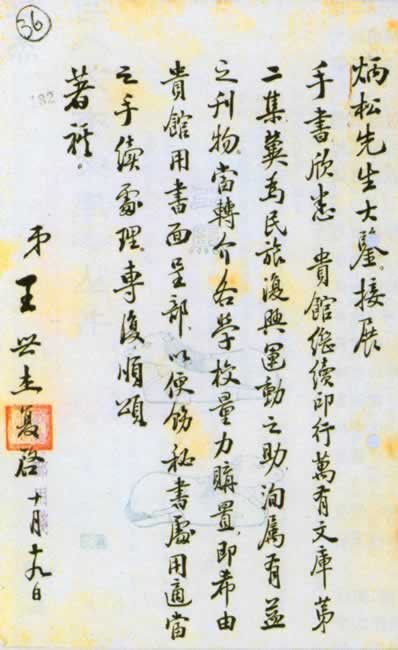 炳松先生大鑒。接展
手書欣悉　貴館繼續印行萬有文庫第
二集，冀為民族復興運動之助，洵屬有益
之刊物。當轉介各學校量力購置，即希由
貴館用書面呈部，以便飭秘書處用適當
之手續處理。專復順頌
著祺。
弟王世杰复啓 十月十九日
36
182